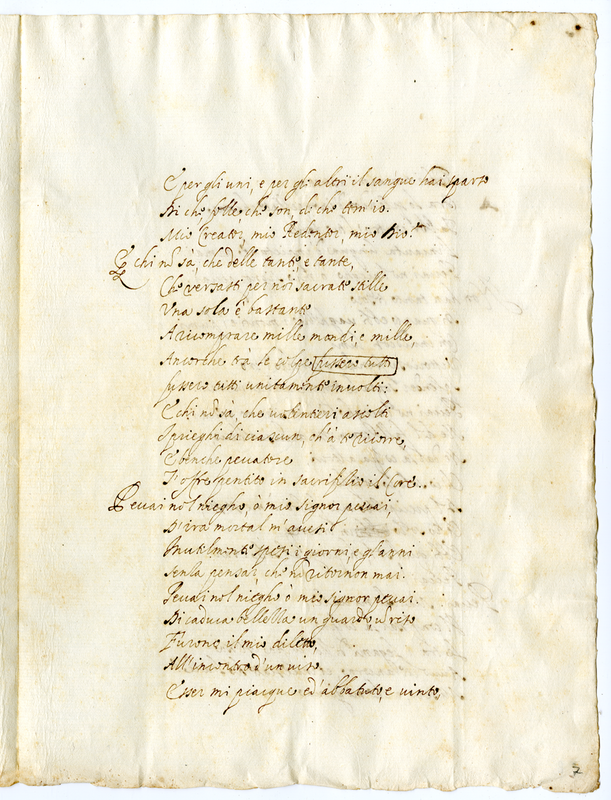 E per gli uni, e per gli altri il sangue hai sparto
Di che, folle che son, di che tem'io.
Mio Creator, mio Redentor, mio Dio.
E chi nõ sà, che delle tante, e tante,
Che versasti per noi sacrate stille
Una sola è bastante
A ricomprare mille mondi, e mille,
Ancorche trà le colpe fussero tutti
fussero tutti unitamente involti:
E chi nõ sà, che volentieri ascolti
I prieghi di ciascun, ch'à te ricorre,
E benche peccatore
T'offre pentito in sacrifitio il Core.
Peccai nol niegho, ò mio signor peccai,
D'ira mortal m'accesi
Inutilmente spesi i giorni, e gl'anni
senza pensar, che nõ ritornon mai.
Peccai nol niegho ò mio signor peccai.
Di caduca bellezza un guardo, ũ riso
Furono il mio diletto,
All'incontro d'un viso
Esser mi piacque ed'abbattuto, e vinto,
7